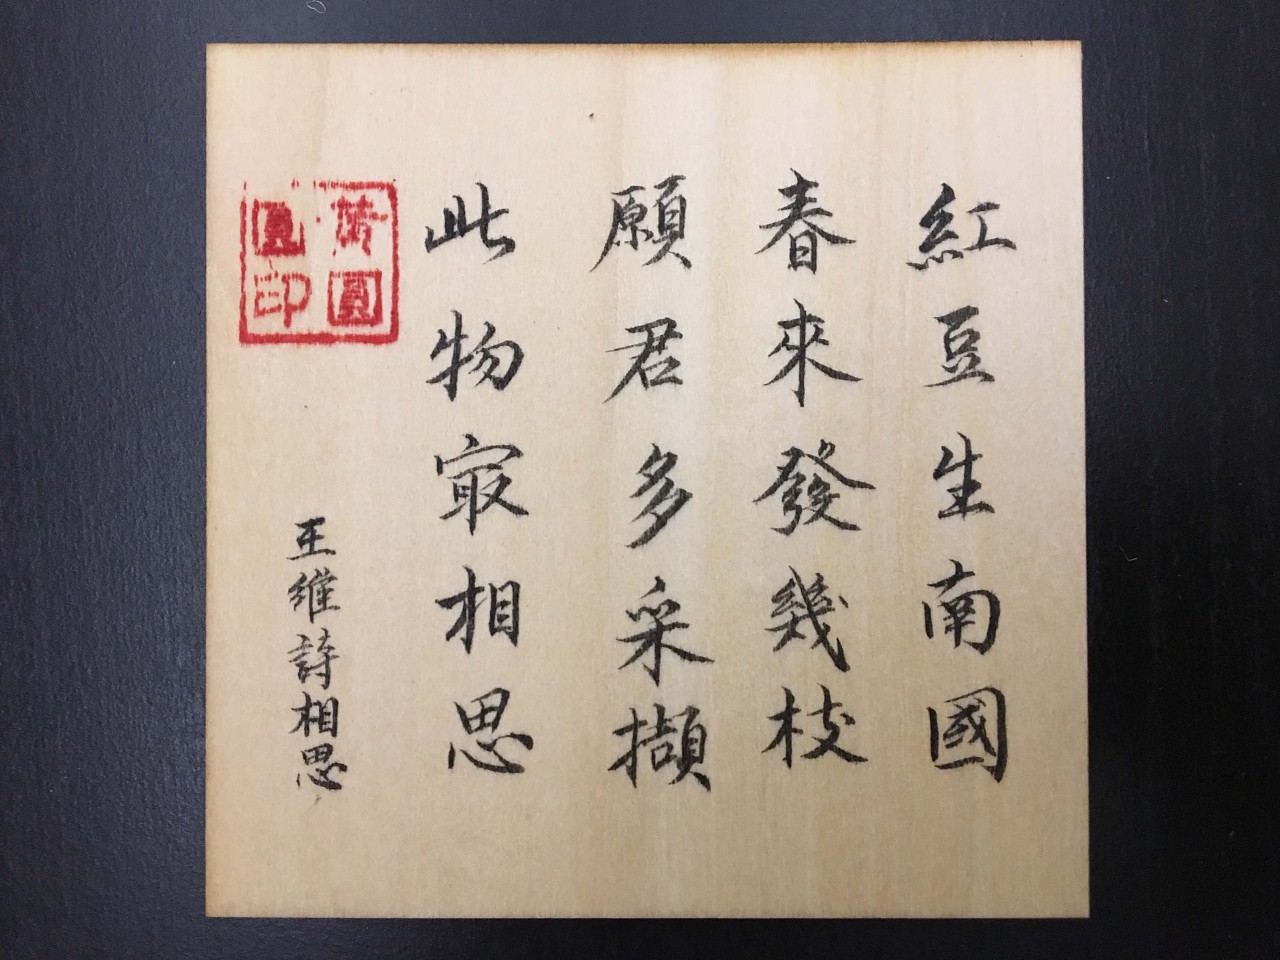 紅豆生南國
春來發幾枝
願君多采擷
此物冣相思
王維詩相思
黃圓圓印